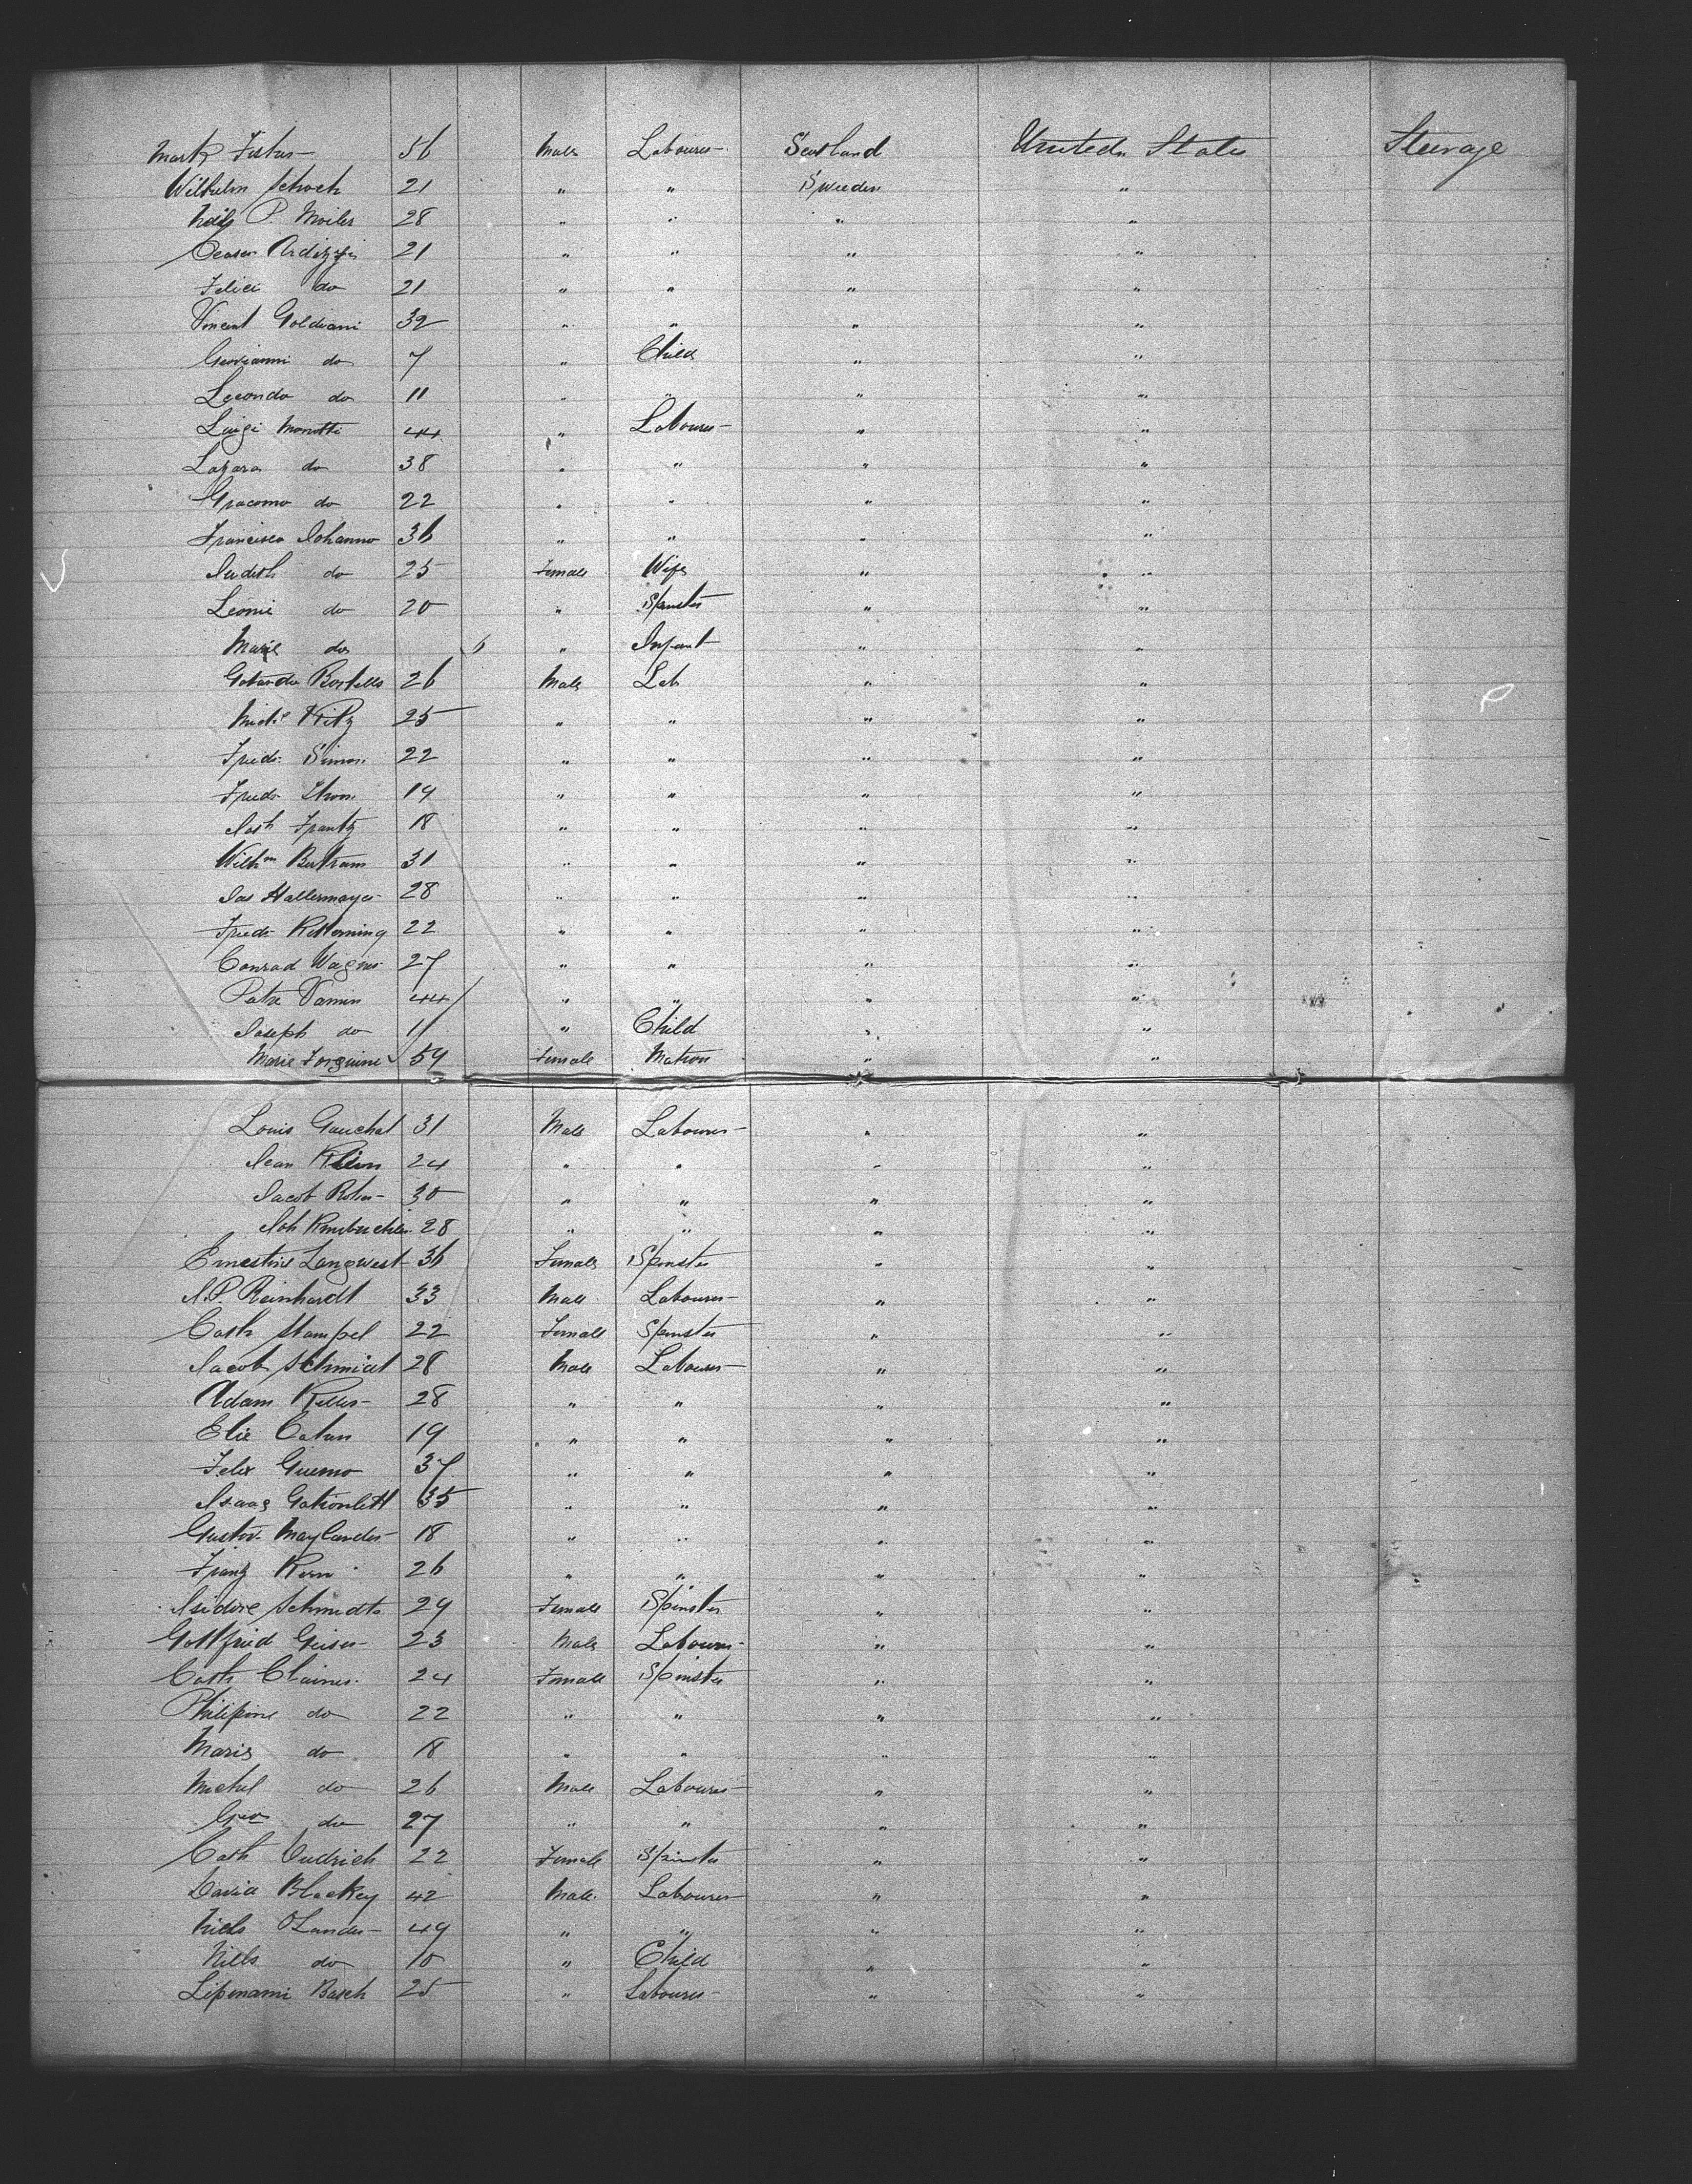 Mark Fistus 56 Male Labourer Scotland United States Steerage
Wilhelm Schoch 21 " " Sweeden "
P. Moiler 28 " " " "
Ceaser 21 " " " "
Felici do 21 " " " "
Vincent Goldiani 32 " " " "
Geovianni do 7 " Child " "
Secondo do 11 " " " "
Luigi Moretti 44 " Labourer " "
Lazaro do 38 " " " "
Giacomo do 22 " " " "
Francisco Johanno 36 " " " "
Judith do 25 Female Wife " "
Leonie do 20 " Spinster " "
Marie do 6 " Infant " "
26 Male Lab " "
25 " " " "
Fredr Simon 22 " " " "
Fredr Thom 19 " " " "
Josh Frantz 18 " " " "
Wilhm Bertram 31 " " " "
Jos Hallermayer 28 " " " "
Fredr 22 " " " "
Conrad Wagner 27 " " " "
Vamin 44 " " " "
Joseph do 11 " Child " "
Marie Forguine 59 Female Matron " "
Louis Gauchat 31 Male Labourer " "
Jean Klein 24 " " " "
Jacob 30 " " " "
Joh 28 " " " "
Ernestine Langwest 36 Female Spinster " "
J. P. Reinhardt 33 Male Labourer " "
Cath Stampel 22 Female Spinster " "
Jacob Schmidt 28 Male Labourer " "
Adam Keller 28 " " " "
Elie Catun 19 " " " "
Felix Guerno 37 " " " "
Isaac 35 " " " "
Gustav Maylander 18 " " " "
Franz Kern 26 " " " "
Isidore Schmidt 29 Female Spinster " "
Gottfried Geiser 23 Male Labourer " "
Cath Claines 24 Female Spinster " "
Philipine do 22 " " " "
Marie do 18 " " " "
Michel do 26 Male Labourer " "
Geo do 27 " " " "
Cath 22 Female Spinster " "
David Blackey 42 Male Labourer " "
Niels OLander 49 " " " "
Nills do 10 " Child " "
Basch 25 " Labourer " "